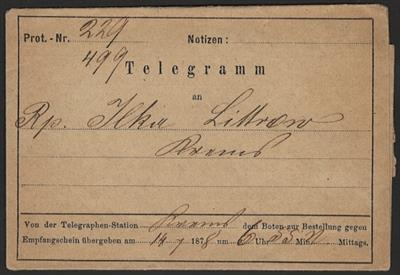 Prot.-Nr. 229 Notizen:
499
Telegramm
an
Rp. Ilka Littrow
Krems
Von der Telegraphen-Station Krems dem Boten zur Bestellung gegen
Empfangschein übergeben am 14/7 1878 um 6 Uhr Min. Mittags.